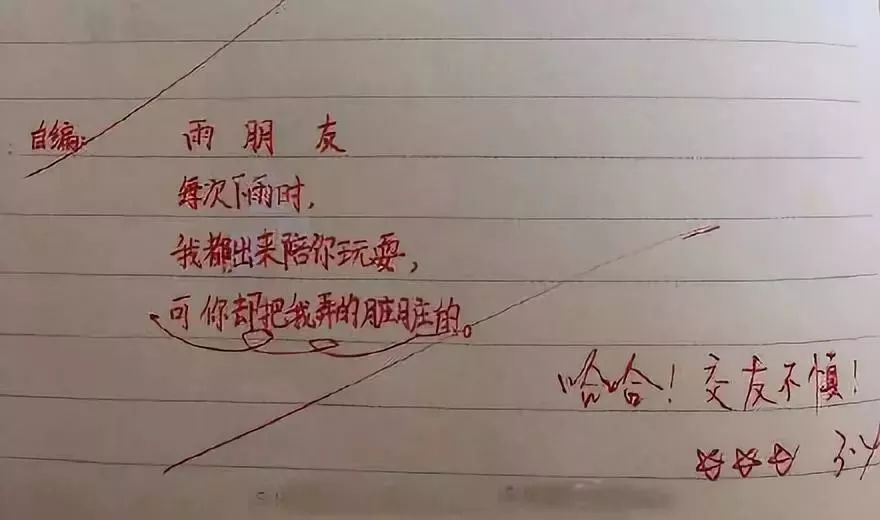 自编: 雨朋友
每次下雨时,
我都出来陪你玩耍,
可你却把我弄的脏脏的。
哈哈!交友不慎!
3.4